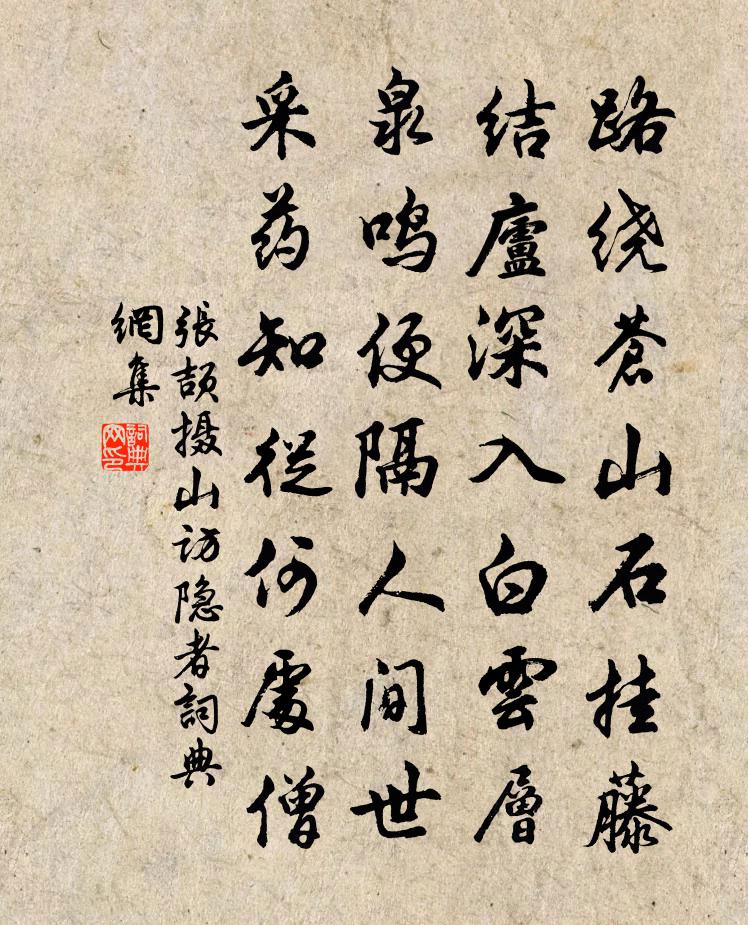 路绕苍山石挂藤
结廬深入白雲層
泉鸣便隔人间世
采药知從何處僧
張颉摄山访隐者詞典
網集
詞典
网印